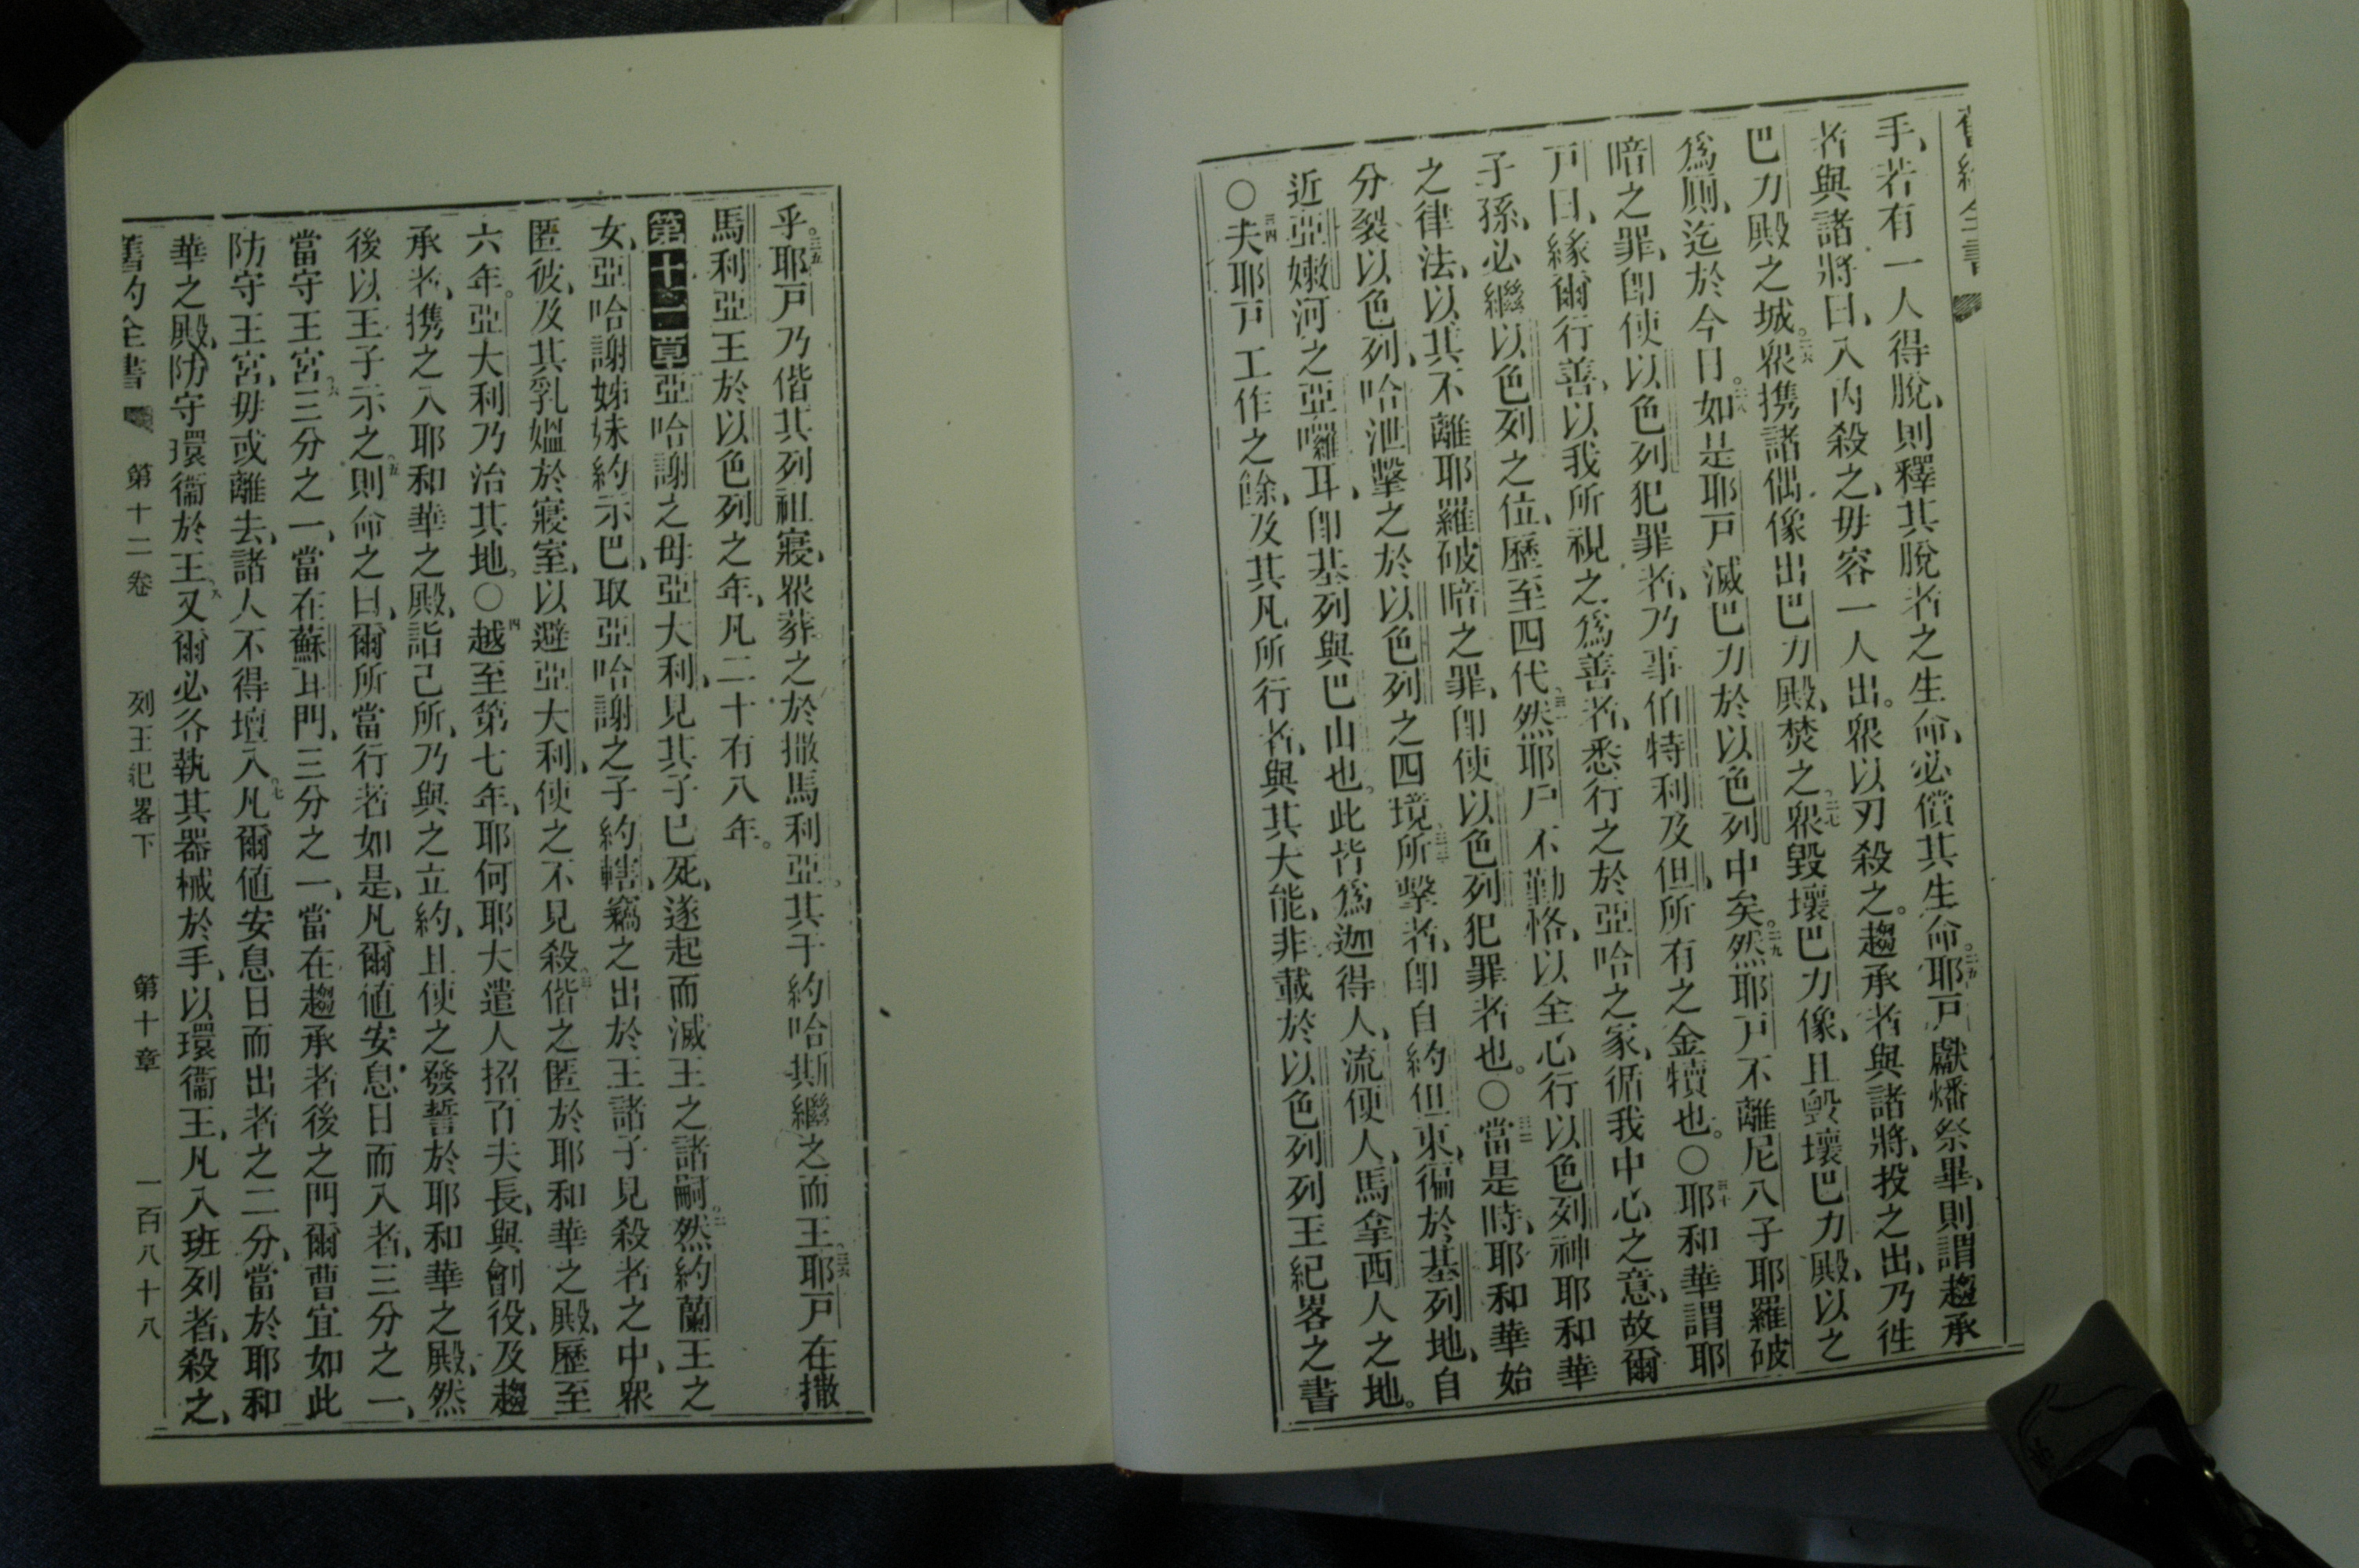 舊約全書
手、若有一人得脫、則釋其脫者之生命、必償其生命。二五耶戶獻燔祭畢、則謂趨承
者與諸將曰、入內殺之、毋容一人出。衆以刃殺之。趨承者與諸將、投之出、乃徃
巴力殿之城。二六衆携諸偶像出巴力殿、焚之。二七衆毀壞巴力像、且毀壞巴力殿、以之
爲厠、迄於今日。二八如是耶戶滅巴力於以色列中矣。二九然耶戶不離尼八子耶羅破
暗之罪、卽使以色列犯罪者、乃事伯特利及但、所有之金犢也。〇三十耶和華謂耶
戶曰、緣爾行善、以我所視之爲善者、悉行之於亞哈之家、循我中心之意、故爾
子孫、必繼以色列之位、歷至四代。三一然耶戶不勤恪、以全心行以色列神耶和華
之律法、以其不離耶羅破暗之罪、卽使以色列犯罪者也。〇三二當是時、耶和華始
分裂以色列、哈泄擊之於以色列之四境、三三所擊者、卽自約但東、徧於基列地、自
近亞嫩河之亞囉耳、卽基列與巴山也。此皆爲迦得人、流便人、馬拿西人之地。
〇三四夫耶戶工作之餘、及其凡所行者、與其大能、非載於以色列列王紀畧之書
乎。三五耶戶乃偕其列祖寢、衆葬之於撒馬利亞。其子約哈斯繼之而王。三六耶戶在撒
馬利亞王於以色列之年、凡二十有八年。
第十一章亞哈謝之母亞大利、見其子已死、遂起而滅王之諸嗣。二然約蘭王之
女、亞哈謝姊妹約示巴、取亞哈謝之子約轄、竊之出於王諸子見殺者之中、衆
匿彼、及其乳媼於寢室、以避亞大利、使之不見殺。三偕之匿於耶和華之殿、歷至
六年。亞大利乃治其地。〇四越至第七年、耶何耶大遣人招百夫長、與劊役、及趨
承者、携之入耶和華之殿、詣己所、乃與之立約、且使之發誓於耶和華之殿、然
後以王子示之。五則命之曰、爾所當行者如是、凡爾値安息日而入者、三分之一、
當守王宮、六三分之一、當在蘇耳門、三分之一、當在趨承者後之門、爾曹宜如此
防守王宮、毋或離去、諸人不得壇入。七凡爾値安息日而出者之二分、當於耶和
華之殿、防守環衞於王。八又爾必各執其器械於手、以環衞王、凡入班列者、殺之、
舊約全書 第十二卷 列王紀畧下 第十章 一百八十八